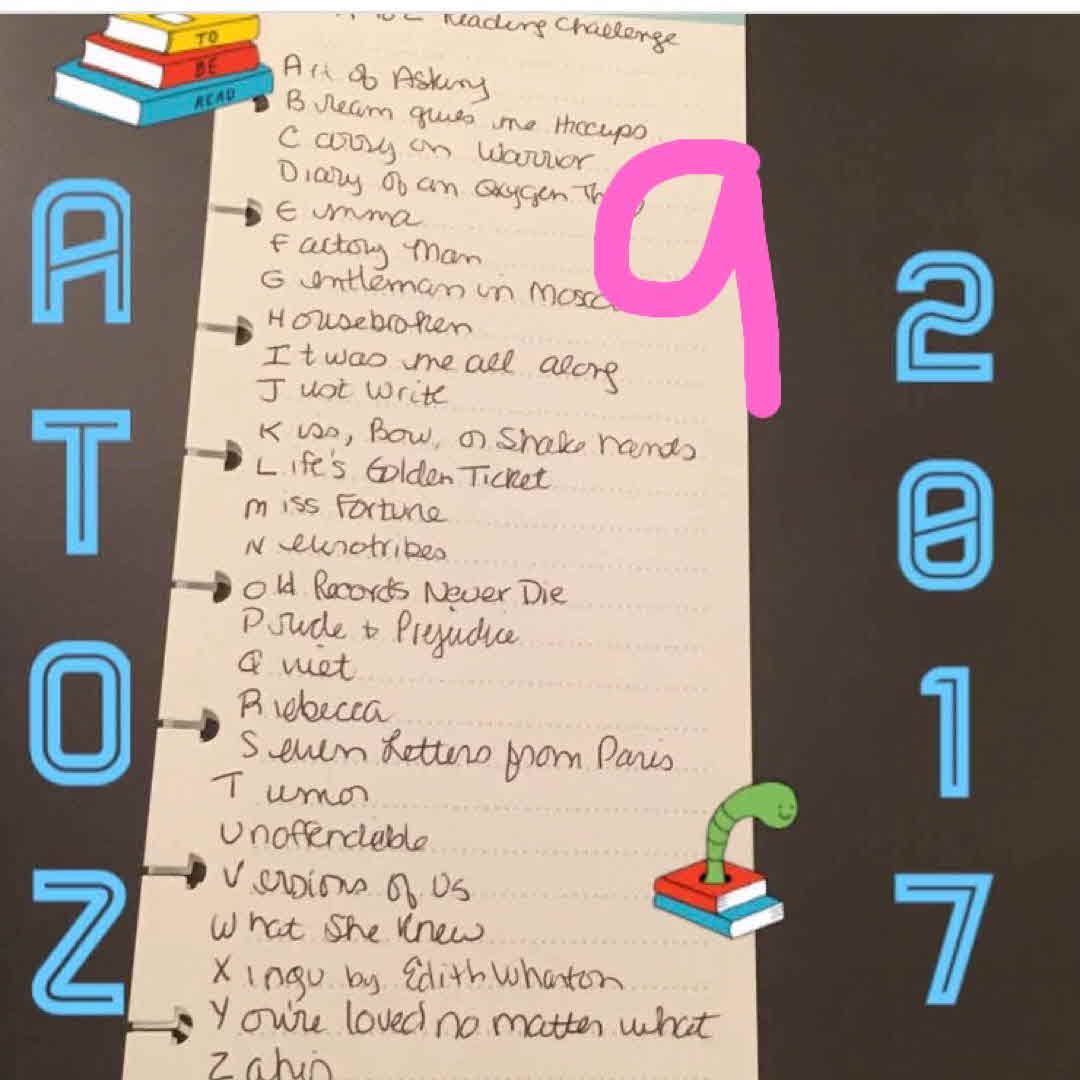 Reading Challenge
TO
BE
READ
Art of Asking
Bream gives me Hiccups
Carry on Warrior
Diary of an Oxygen
Emma
Factory Man
Gentleman in
Housebroken
It was me all along
Just Write
Kiss, Bow, or Shake hands
Life's Golden Ticket
Miss Fortune
Neurotribes
Old Records Never Die
Pride & Prejudice
Quiet
Rebecca
Seven Letters from Paris
Tumor
Unoffendable
Versions of Us
What She Knew
Xingu by Edith Wharton
You're loved no matter what
9
A
T
O
Z
2
0
1
7